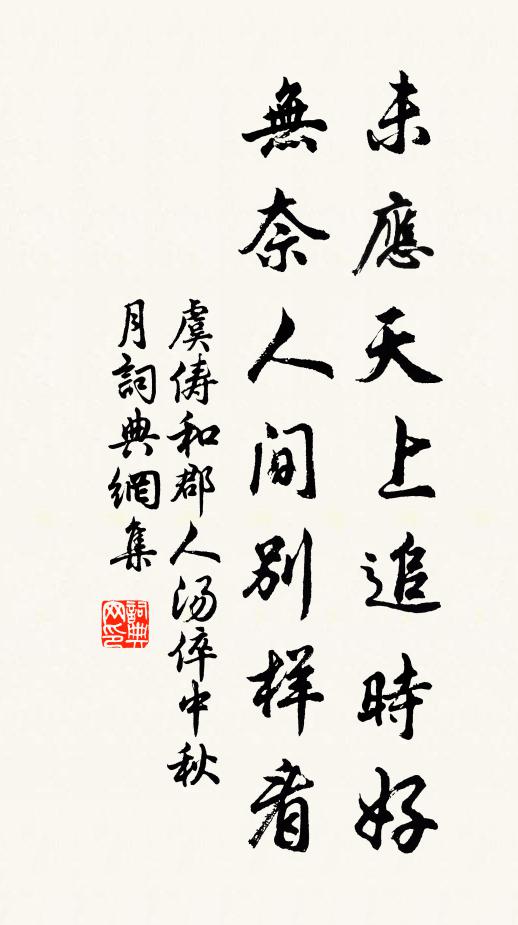 未應天上追時好
無奈人間別樣看
虞儔和郡人湯倅中秋
月詞典網集
詞典
网印